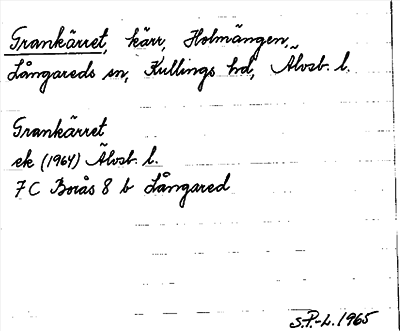 Grankärret, kärr, Holmängen,
Långareds sn, Kullings hd, Älvsb. l.
Grankärret
ek (1964) Älvsb. l.
7 C Borås 8 b Långared
S.P.-L. 1965